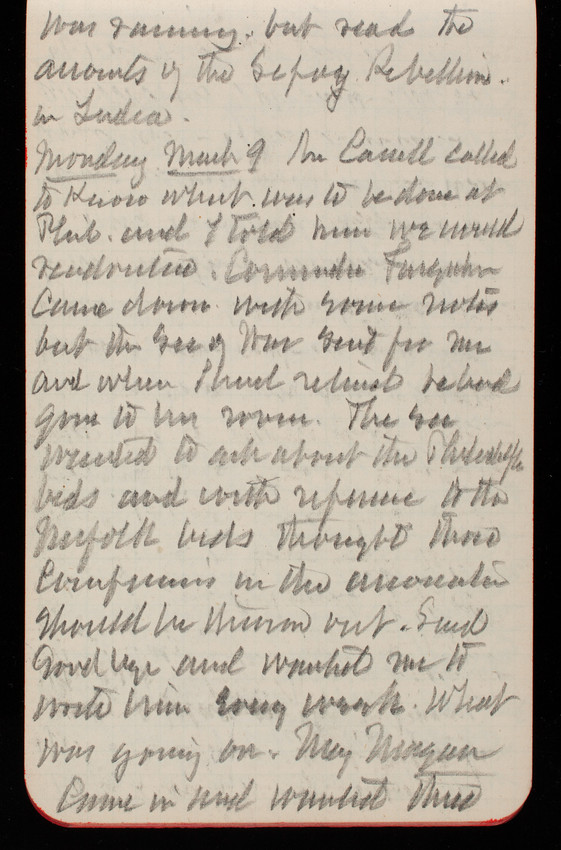 was raining. but read the
accounts of the Sepoy Rebellion.
in India.
Monday March 9 Mr Carroll called
to know what was to be done at
Phil. and I told him we would
readvertise. Commander Farquhar
came down with some notes
but the Sec of War sent for me
and when I had retired he had
gone to his room. The Sec
wanted to ask about the Philadelph
bids and with reference to the
Norfolk bids thought those
Companies in the association
should be thrown out. Said
Good bye and wanted me to
write him every week. What
was going on. Maj Magan
came in and wanted three